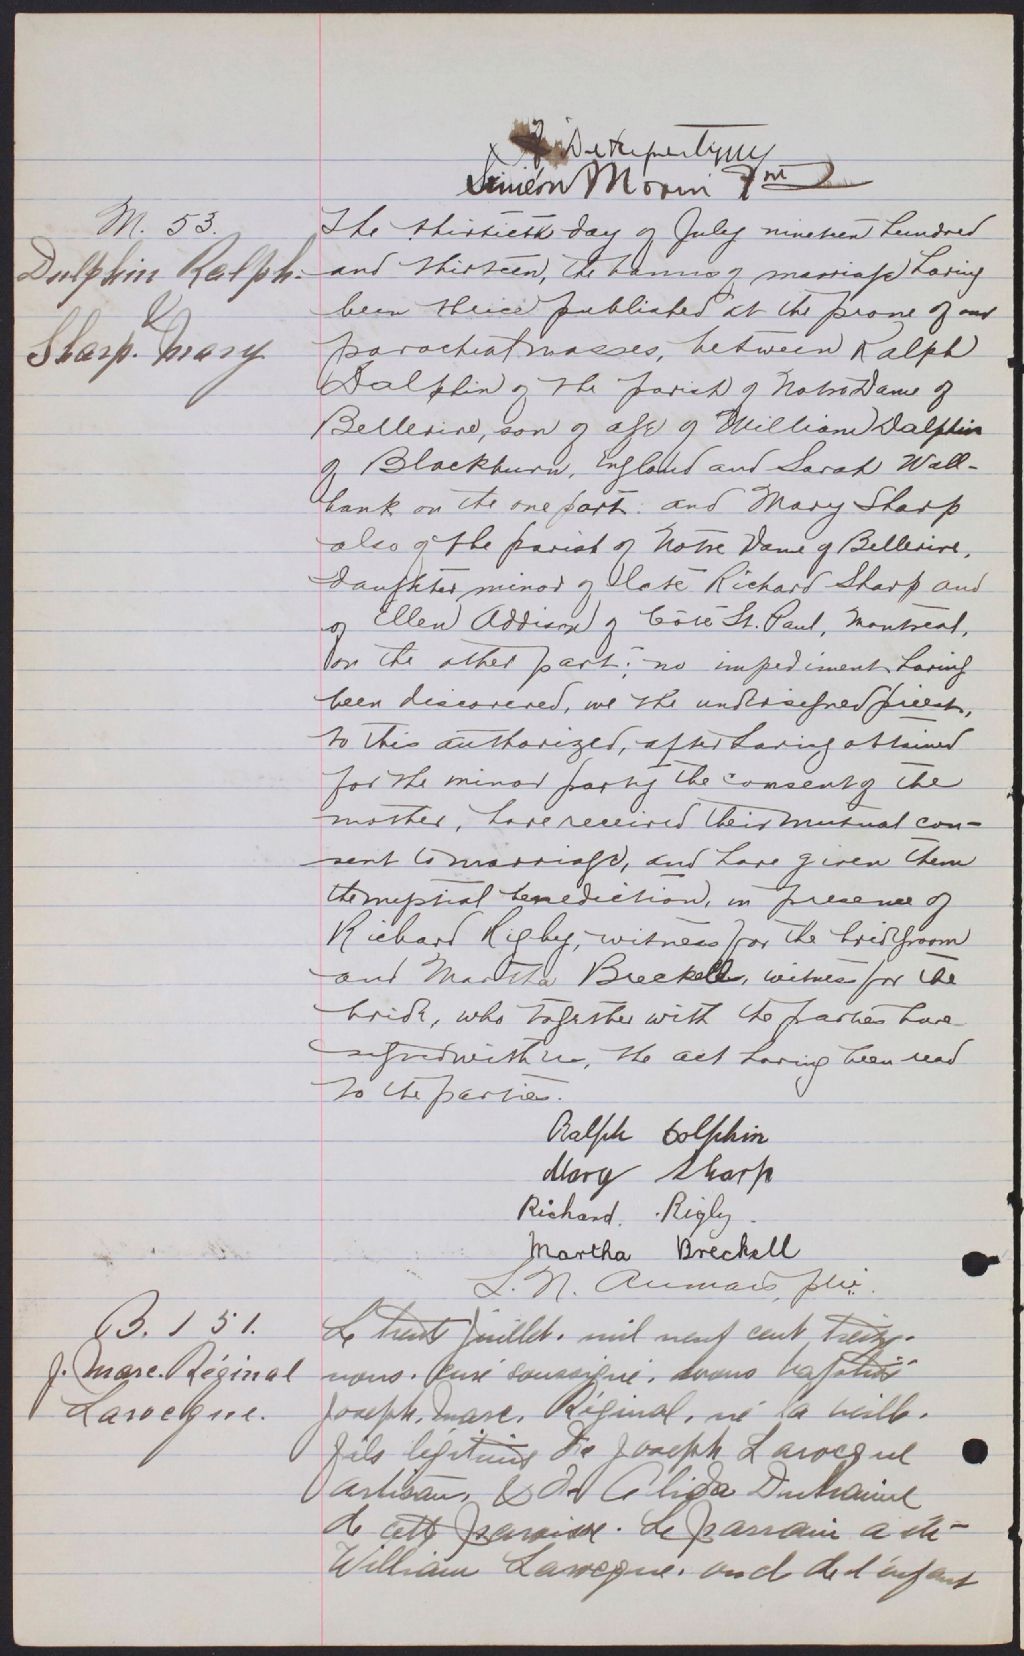 J. De Repentigny
Siméon Morin Ptre
M. 53.
Dolphin Ralph.
&
Sharp. Mary
The thirtieth day of July nineteen hundred
and thirteen, the banns of marriage having
been thrice published at the prone of our
parochial masses, between Ralph
Dalphin of the parish of Notre Dame of
Bellerive, son of age of William Dalphin
of Blackburn, England and Sarah Wall-
bank on the one part: and Mary Sharp
also of the parish of Notre Dame of Bellerive,
daughter minor of late Richard Sharp and
of Ellen Addison of Côte St. Paul, Montreal,
on the other part; no impediment having
been discovered, we the undersigned priest,
to this authorized, after having obtained
for the minor party the consent of the
mother, have received their mutual con-
sent to marriage, and have given them
the nuptial benediction, in presence of
Richard Rigby, witness for the bridegroom
and Martha Breckell, witness for the
bride, who together with the parties have
signed with us, the act having been read
to the parties.
Ralph Dolphin
Mary Sharp
Richard. Rigby.
Martha Breckell
L. N. Aumais, ptre.
B. 151.
J. Marc. Réginal
Larocque.
Le trente Juillet. mil neuf cent treize.
nous. curé soussigné. avons baptisé
Joseph. Marc. Réginal. né la veille.
fils légitime de Joseph Larocque
artisan, & de Alida Duhaime
de cette paroisse. Le parrain a été
William Larocque. oncle de l'enfant